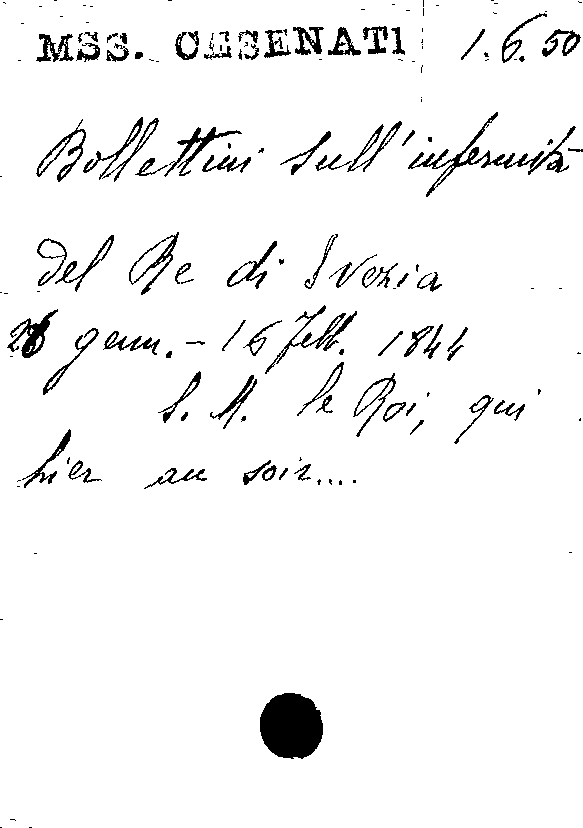 MSS. CASENATI 1.6.50
Bollettini sull'infermità
del Re di Svezia
26 genn. - 16 febb. 1844
S. M. le Roi, qui
hier au soir....